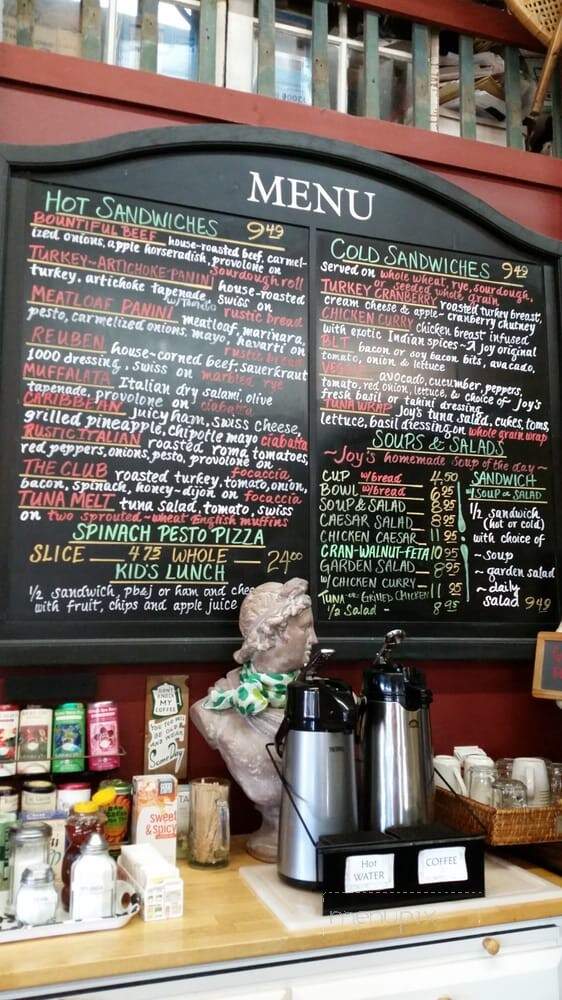 MENU
HOT SANDWICHES 9.49
BOUNTIFUL BEEF house-roasted beef, carmel-
ized onions, apple horseradish, provolone on
sourdough roll
TURKEY-ARTICHOKE PANINI house-roasted
turkey, artichoke tapenade, swiss on
w/Tomato rustic bread
MEATLOAF PANINI meatloaf, marinara,
pesto, carmelized onions, mayo, havarti on
rustic bread
REUBEN house-corned beef, sauerkraut
1000 dressing, swiss on marbled rye
MUFFALATA Italian dry salami, olive
tapenade, provolone on ciabatta
CARIBBEAN juicy ham, swiss cheese,
grilled pineapple, chipotle mayo ciabatta
RUSTIC ITALIAN roasted roma tomatoes,
red peppers, onions, pesto, provolone on
focaccia
THE CLUB roasted turkey, tomato, onion,
bacon, spinach, honey-dijon on focaccia
TUNA MELT tuna salad, tomato, swiss
on two sprouted-wheat English muffins
SPINACH PESTO PIZZA
SLICE 4.75 WHOLE 24.00
KID'S LUNCH
1/2 sandwich, pb&j or ham and chee
with fruit, chips and apple juice
COLD SANDWICHES 9.49
served on whole wheat, rye, sourdough,
or seeded whole grain
TURKEY CRANBERRY roasted turkey breast,
cream cheese & apple-cranberry chutney
CHICKEN CURRY chicken breast infused
with exotic Indian spices-A Joy original
BLT bacon or soy bacon bits, avocado,
tomato, onion & lettuce
avocado, cucumber, peppers,
tomato, red onion, lettuce, & choice of Joy's
fresh basil or tahini dressing
TUNA WRAP Joy's tuna salad, cukes, toms,
lettuce, basil dressing on whole grain wrap
SOUPS & SALADS
~Joy's homemade soup of the day~
CUP w/bread 4.50
BOWL w/bread 6.95
SOUP & SALAD 8.95
CAESAR SALAD 8.95
CHICKEN CAESAR 11.95
CRAN-WALNUT-FETA 10.95
GARDEN SALAD 8.95
w/CHICKEN CURRY
TUNA or GRILLED CHICKEN 11.95
1/2 Salad - 8.95
SANDWICH
w/SOUP or SALAD
1/2 sandwich
(hot or cold)
with choice of
~soup
~garden salad
~daily
salad 9.49
DON'T
KNOCK
MY
COFFEE
YOU TOO MAY
BE OLD
AND
WEAK
Some Day
sweet
& spicy
Hot
WATER
COFFEE
menupix